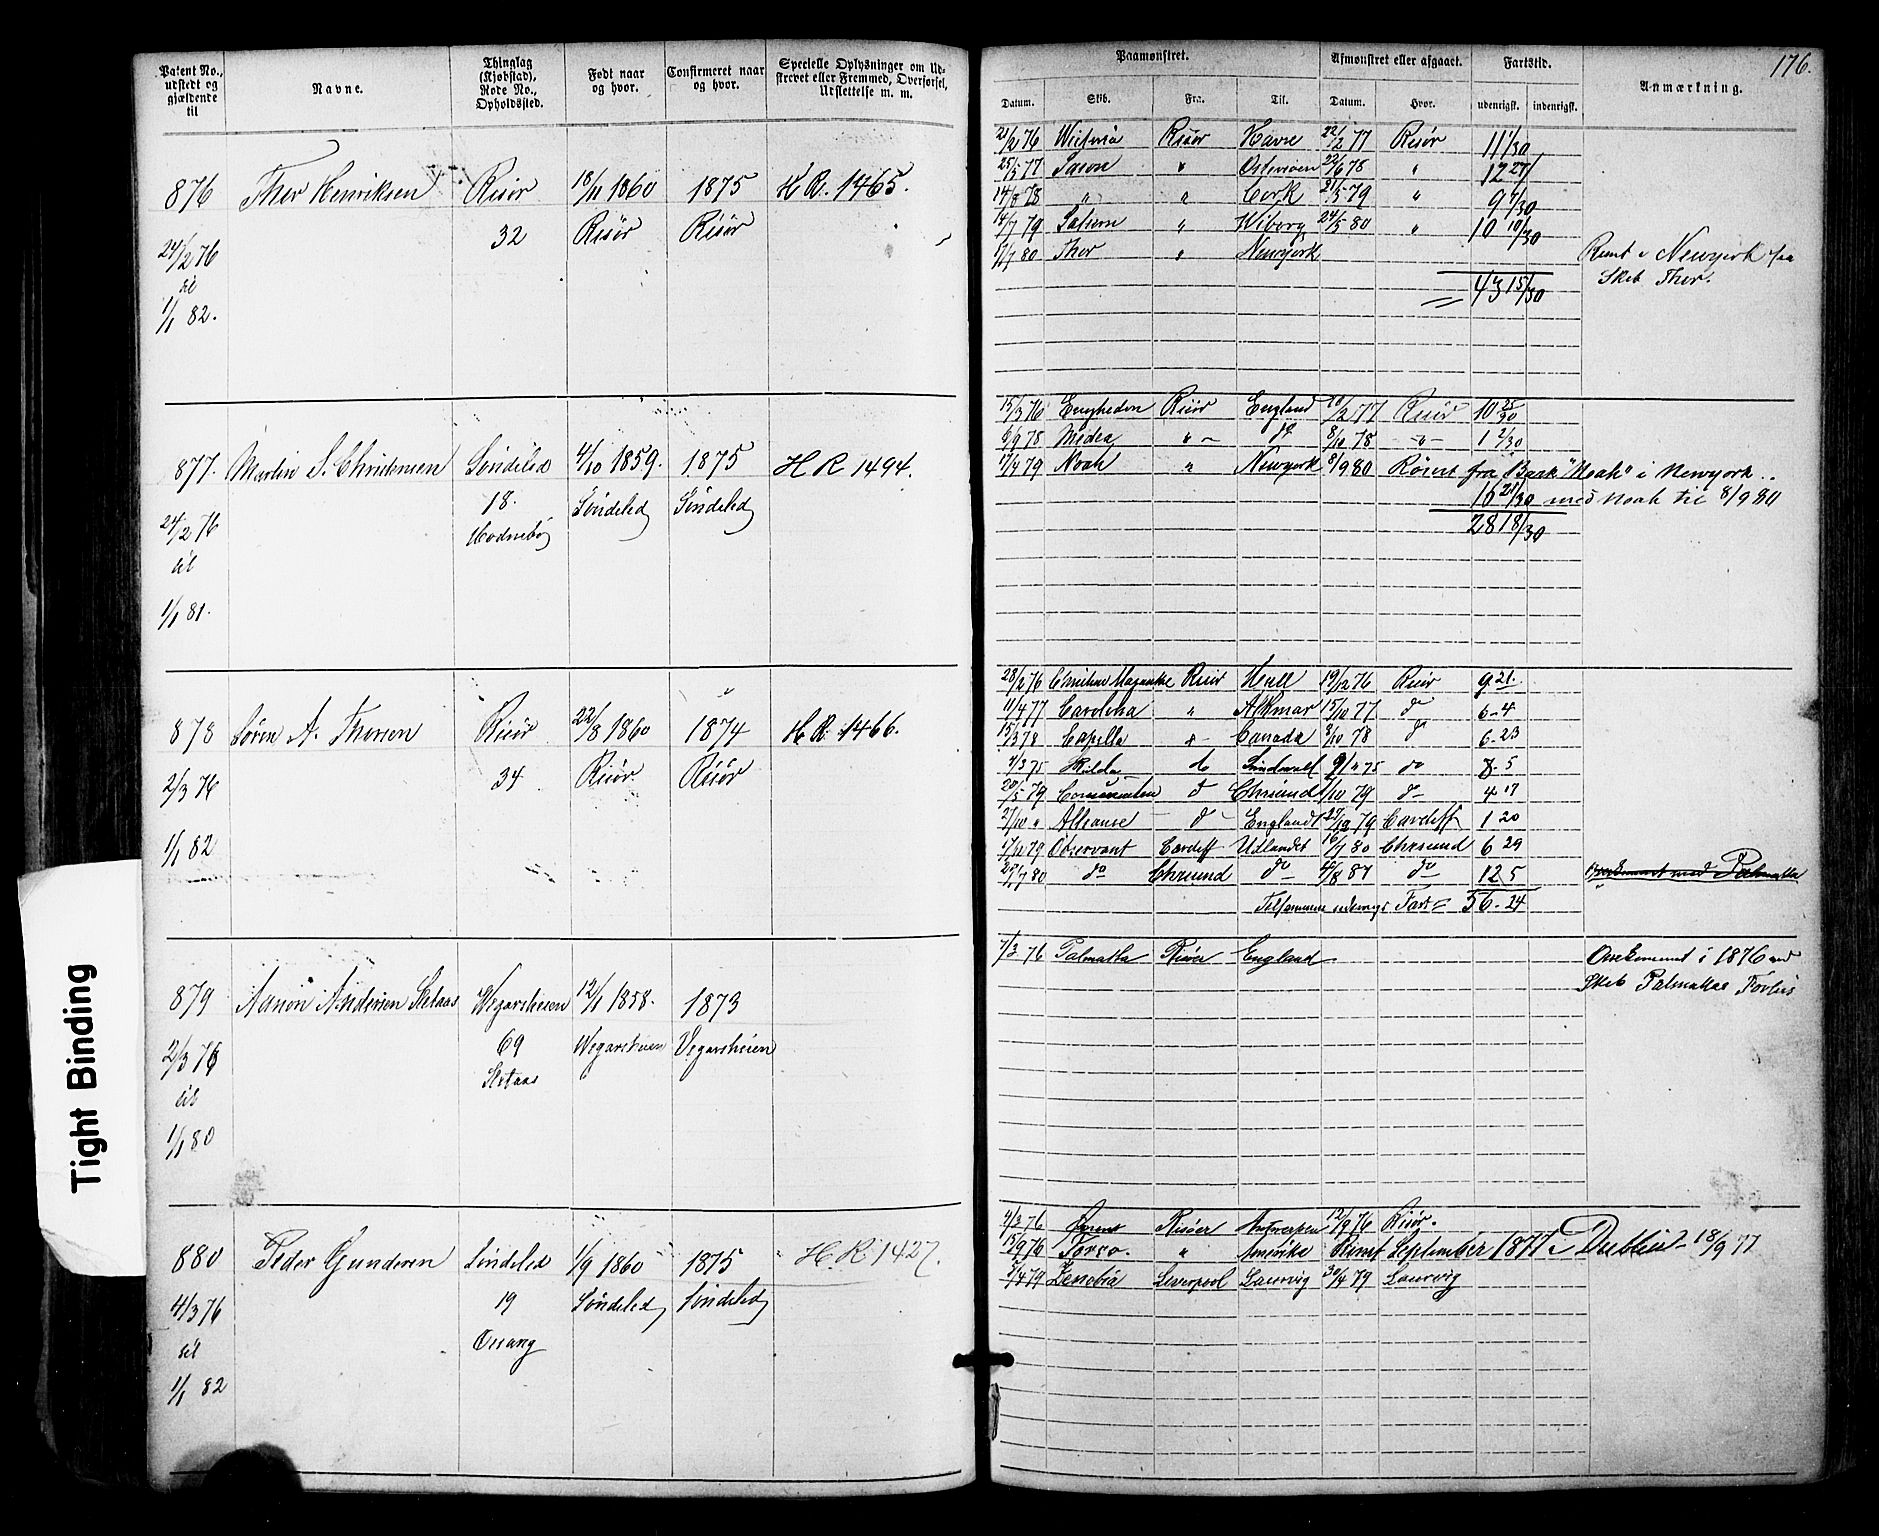 176.
Patent No., udstedt og gjældende til
Navne.
Thinglag (Kjøbstad), Rode No., Opholdssted.
Født naar og hvor.
Confirmeret naar og hvor.
Specielle Oplysninger om Udskrevet eller Fremmed, Overførsel, Udslettelse m. m.
Paamønstret.
Afmønstret eller afgaaet.
Fartstid.
Anmærkning.
Datum. Skib. Fra. Til. Datum. Hvor. udenrigsk. indenrigsk.
876 Thor Henriksen Risør 18/11 1860 1875 H R. 1465.
24/2 76 32 Risør Risør
til
1/1 82.
21/2 76 Risør Havre 22/2 77 Risør 11 1/30
25/5 77 " 22/6 78 " 12 27/
14/8 78 " " Cork 21/5 79 " 9 7/30
14/7 79 " Wiborg 24/5 80 " 10 10/30
1/7 80 Thor " Newyork
Rømt i Newyork fra
Skib Thor.
43 15/30
877. Martin S. Christensen Søndeled 4/10 1859. 1875 H R 1494.
24/2 76 18. Søndeled Søndeled
til Hodnebø
1/1 81.
15/3 76 Enigheden Risør England 20/2 77 Risør 10 25/30
6/9 78 Medea " - do 8/10 78 -"- 1 2/30
1/4 79 Noah " Newyork 8/9 80 Rømt fra Bark "Noah" i Newyork.
16 21/30 med Noah til 8/9 80
28 18/30
878 Søren A. Thorsen Risør 22/8 1860 1874 H R. 1466.
2/3 76 34 Risør Risør
1/1 82
28/2 76 Risør Hull 19/12 76 Risør 9 21.
11/4 77 Carolina " Alkmar 15/10 77 do 6-4
15/3 78 Capella " - Canada 8/10 78 do 6-23
Hilda do Sundsvall do 5
20/5 79 do Chrsund 7/10 79 do 4 17
21/10 " Alliance - do - England 79 Cardiff 1 20
1/12 79 Observant Cardiff Udlandet 16/7 80 Chrsund 6 29
29/7 80 do Chrsund do 4/8 81 do 12 5
med Palmatta
Tilsammen udenrigs Fart = 56-24
879 Aanon Andersen Wegarsheien 12/1 1858. 1873
2/3 76 69 Wegarsheien Vegarsheien
til
1/1 80
7/3 76 Palmatta Risør England
Omkommet i 1876 med
Skib Palmattas Forlis
880 Peder Gundersen Søndeled 1/9 1860 1875 H. R. 1427.
4/3 76 19 Søndeled Søndeled
til
1/1 82
4/3 76 Risøer Antwerpen 12/9 76 Risør.
15/9 76 " Amerika Rømt September 1877 i Dublin - 18/9 77
4 79 Zenobia Liverpool Laurvig 30/4 79 Laurvig
Tight Binding